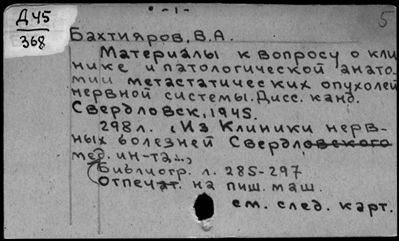 Д45
368
- 1 -
5
Бахтияров, В.А.
Материалы к вопросу о кли-
нике и патологической анато-
мии метастатических опухолей
нервной системы. Дисс. канд.
Свердловск, 1945.
298л. (Из Клиники нерв-
ных болезней Свердловского
мед. ин-та...)
Библиогр. л. 285-297
Отпечат. на пиш. маш.
см. след. карт.